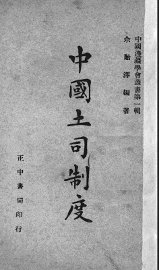 中國邊疆學會叢書第一輯
余貽澤編著
中國土司制度
正中書局印行